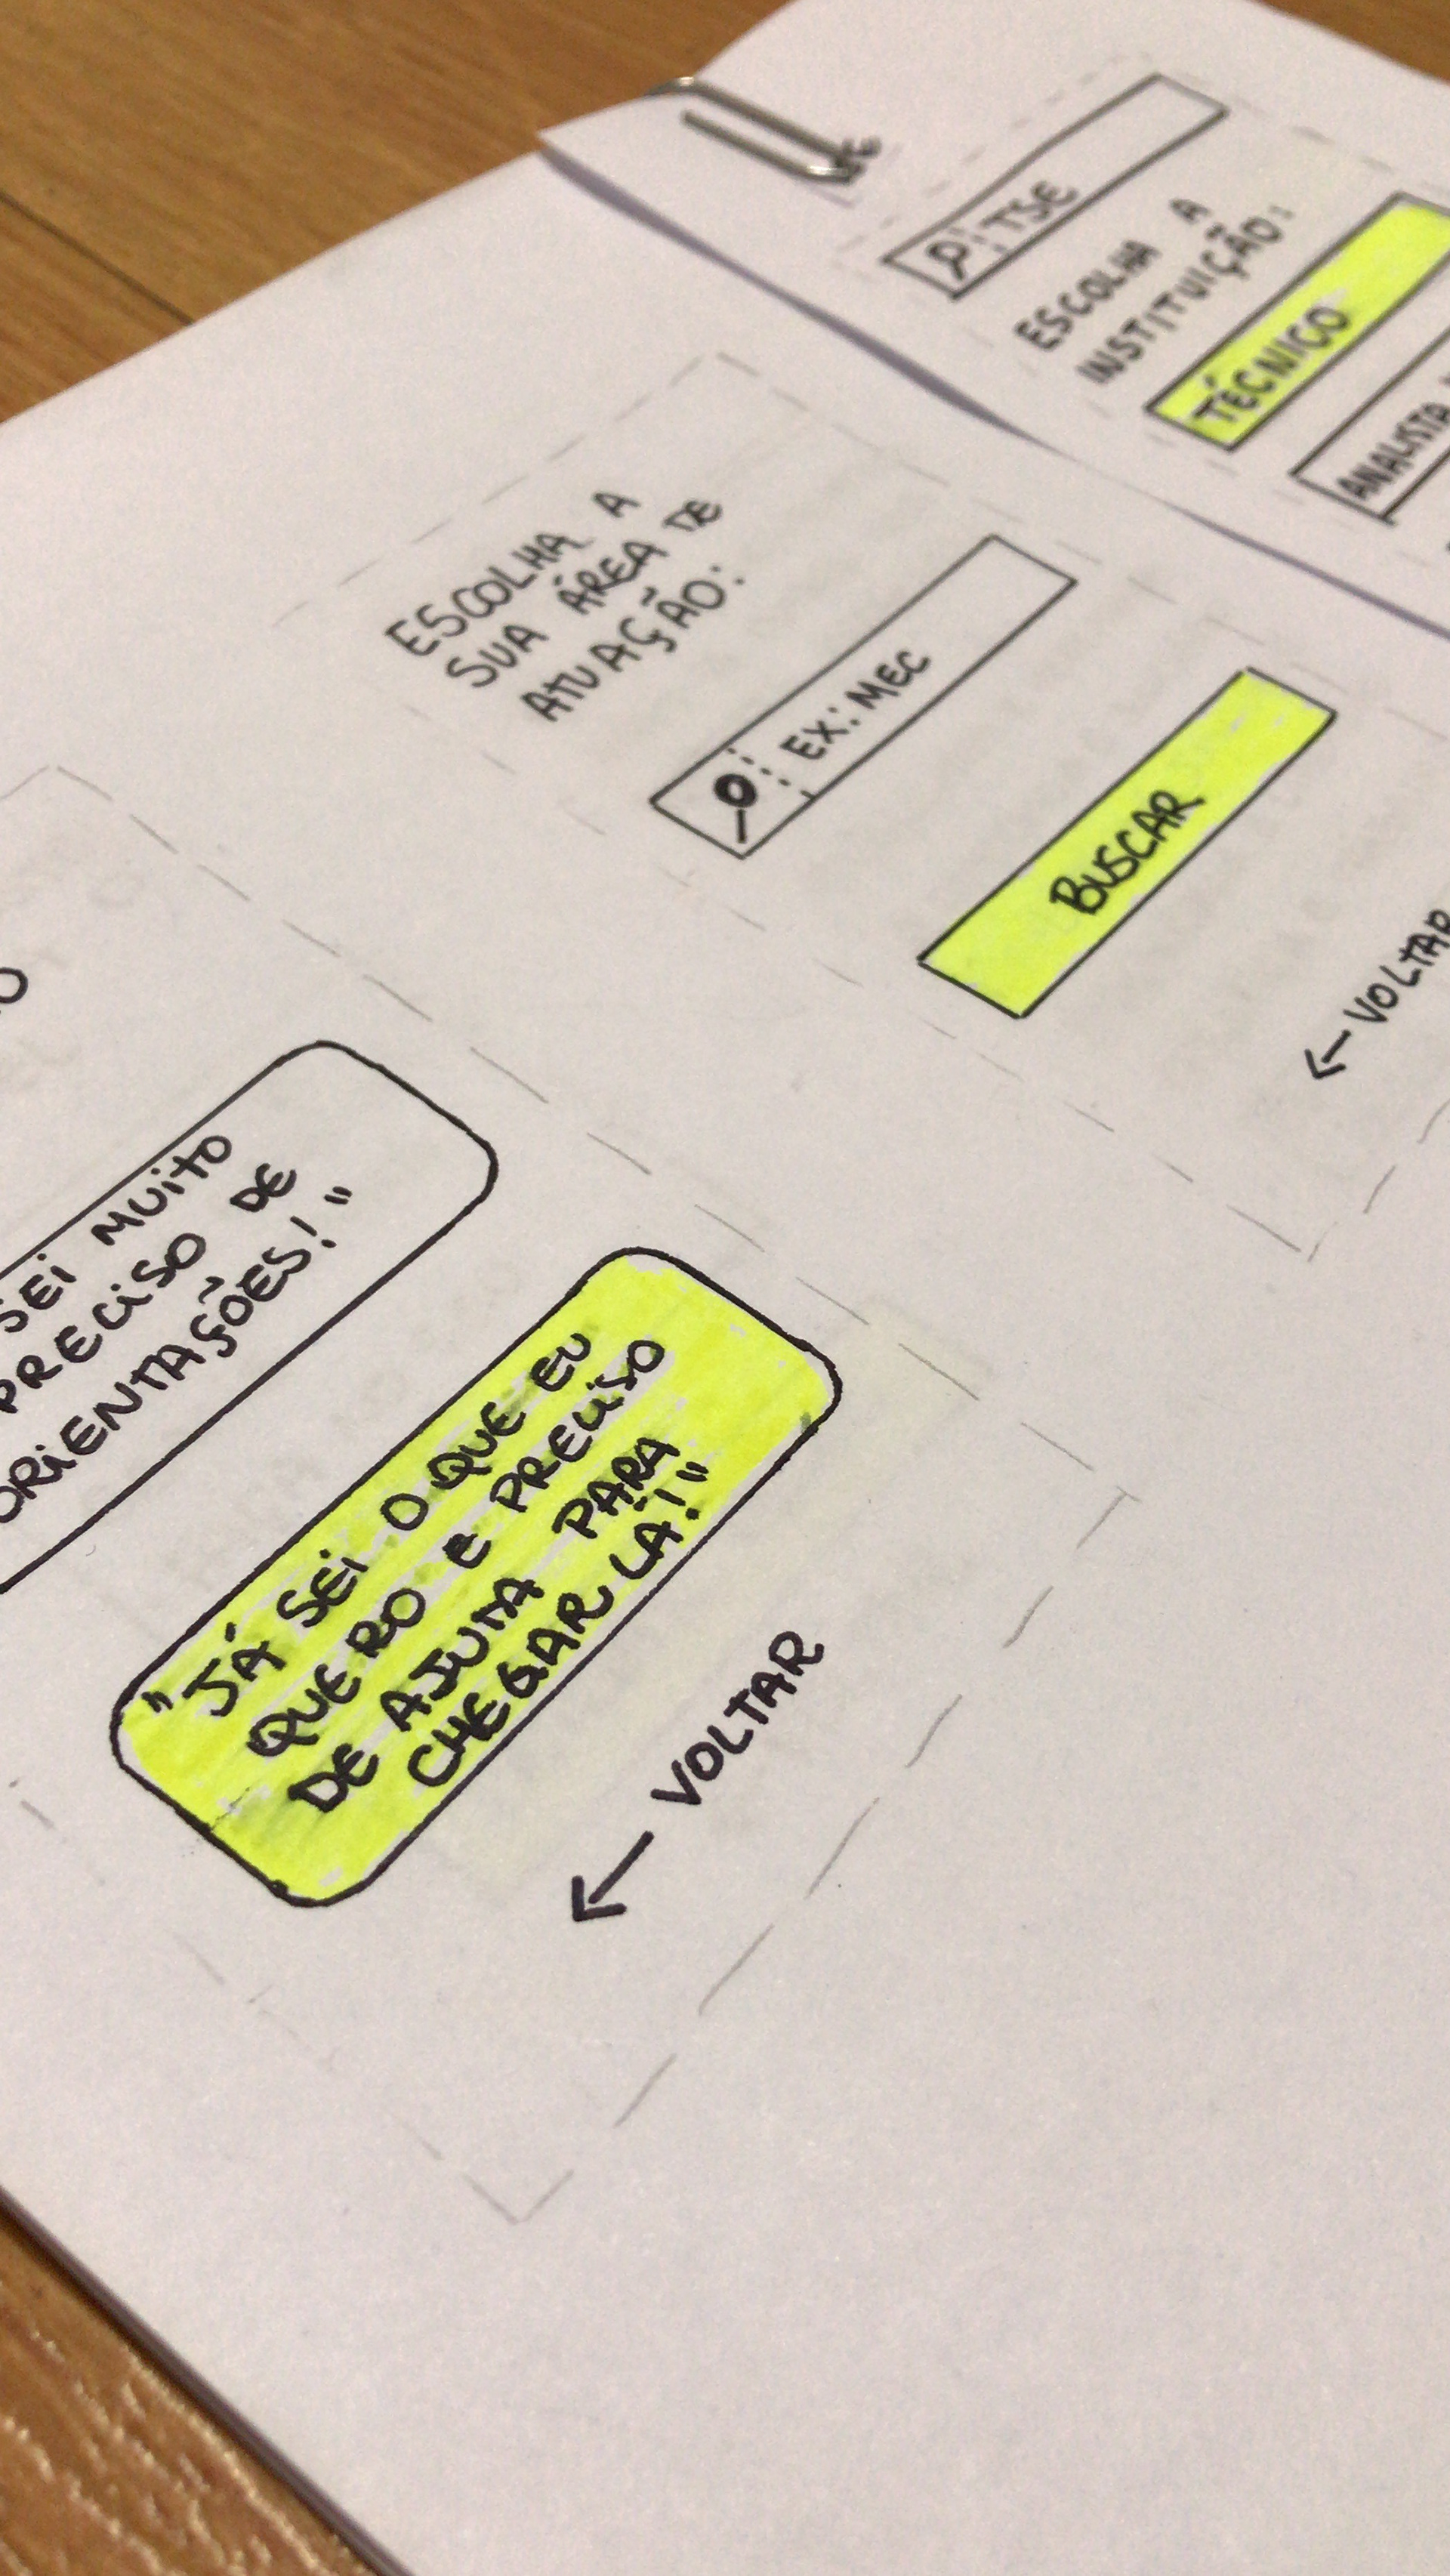 SEI MUITO
PRECISO DE
ORIENTAÇÕES!"
"JÁ SEI O QUE EU
QUERO E PRECISO
DE AJUTA PARA
CHEGAR LÁ!"
← VOLTAR
ESCOLHA A
SUA ÁREA DE
ATUAÇÃO:
EX: MEC
BUSCAR
← VOLTAR
TSE
ESCOLHA A
INSTITUIÇÃO:
TÉCNICO
ANALISTA